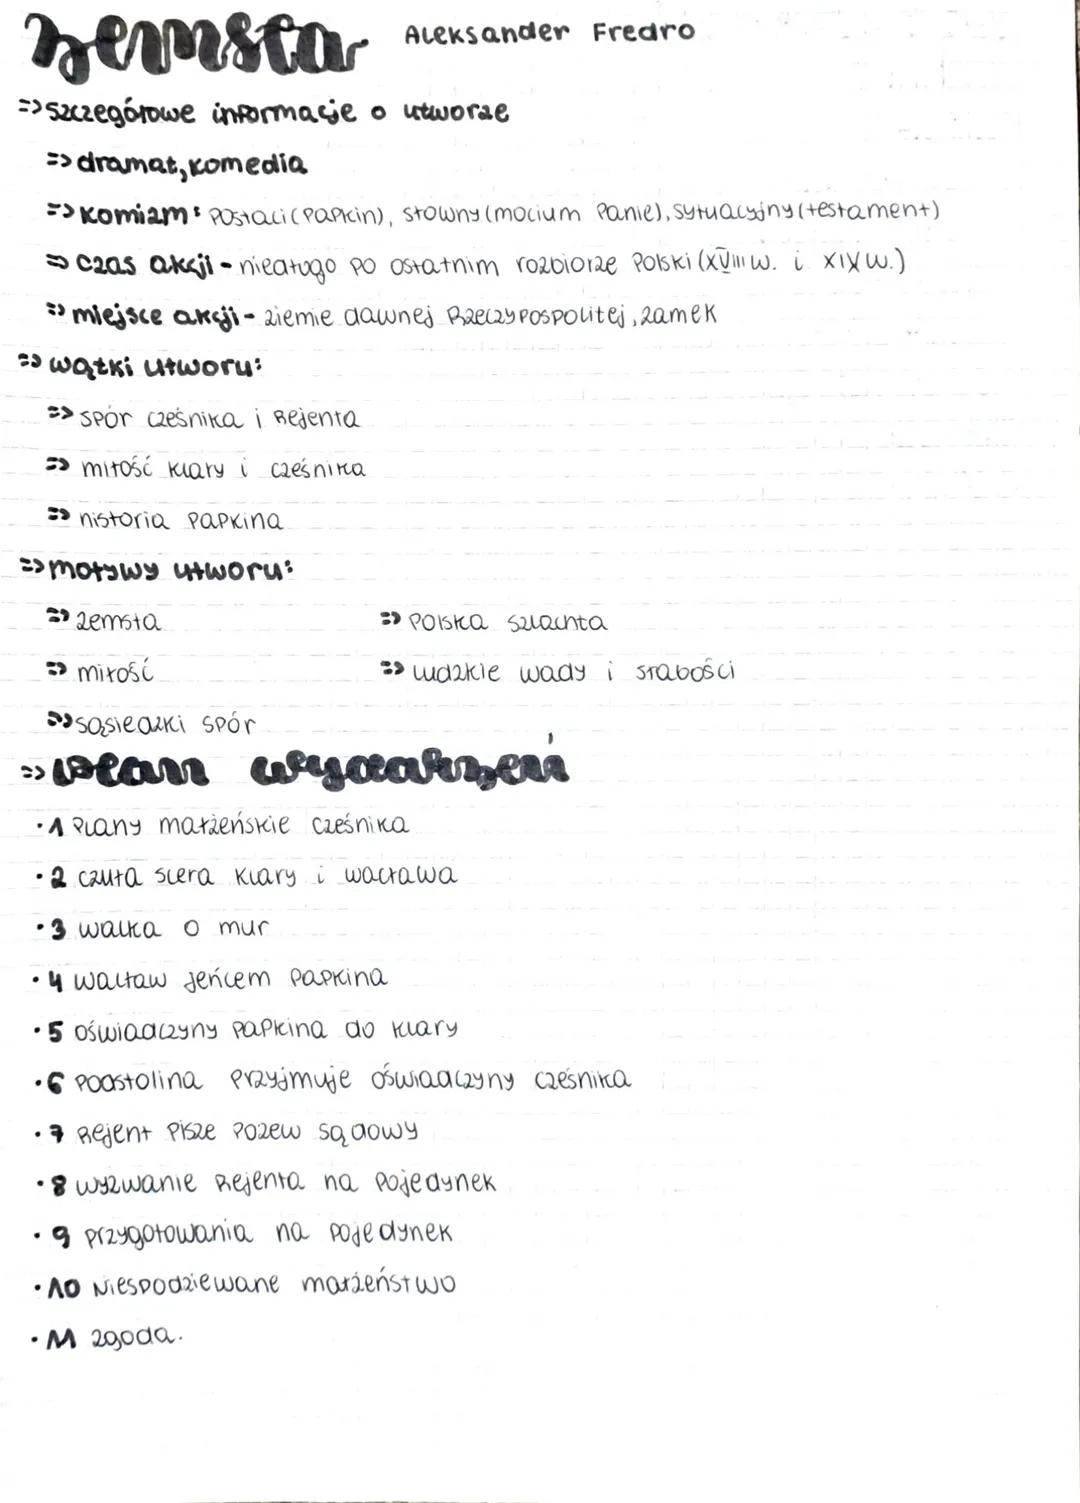 Zemsta Aleksander Fredro
=> szczegółowe informacje o utworze
=> dramat, komedia
=> Komizm: Postaci (Papkin), słowny (mocium Panie), sytuacyjny (testament)
=> czas akcji - niedługo po ostatnim rozbiorze Polski (XVIII w. i XIX w.)
=> miejsce akcji - ziemie dawnej Rzeczypospolitej, zamek
=> wątki utworu:
=> spór cześnika i Rejenta
=> miłość klary i cześnika
=> historia Papkina
=> motywy utworu:
=> zemsta => Polska szlachta
=> miłość => ludzkie wady i słabości
=> sąsiedzki spór
=> Plan wydarzeń
·1 Plany małżeńskie cześnika
·2 czuła scena Klary i wacława
·3 walka o mur
·4 wacław jeńcem Papkina
·5 oświadczyny Papkina do klary
·6 Podstolina przyjmuje oświadczyny cześnika
·7 Rejent pisze pozew sądowy
·8 wyzwanie Rejenta na pojedynek
·9 przygotowania na pojedynek
·10 Niespodziewane małżeństwo
·11 zgoda.